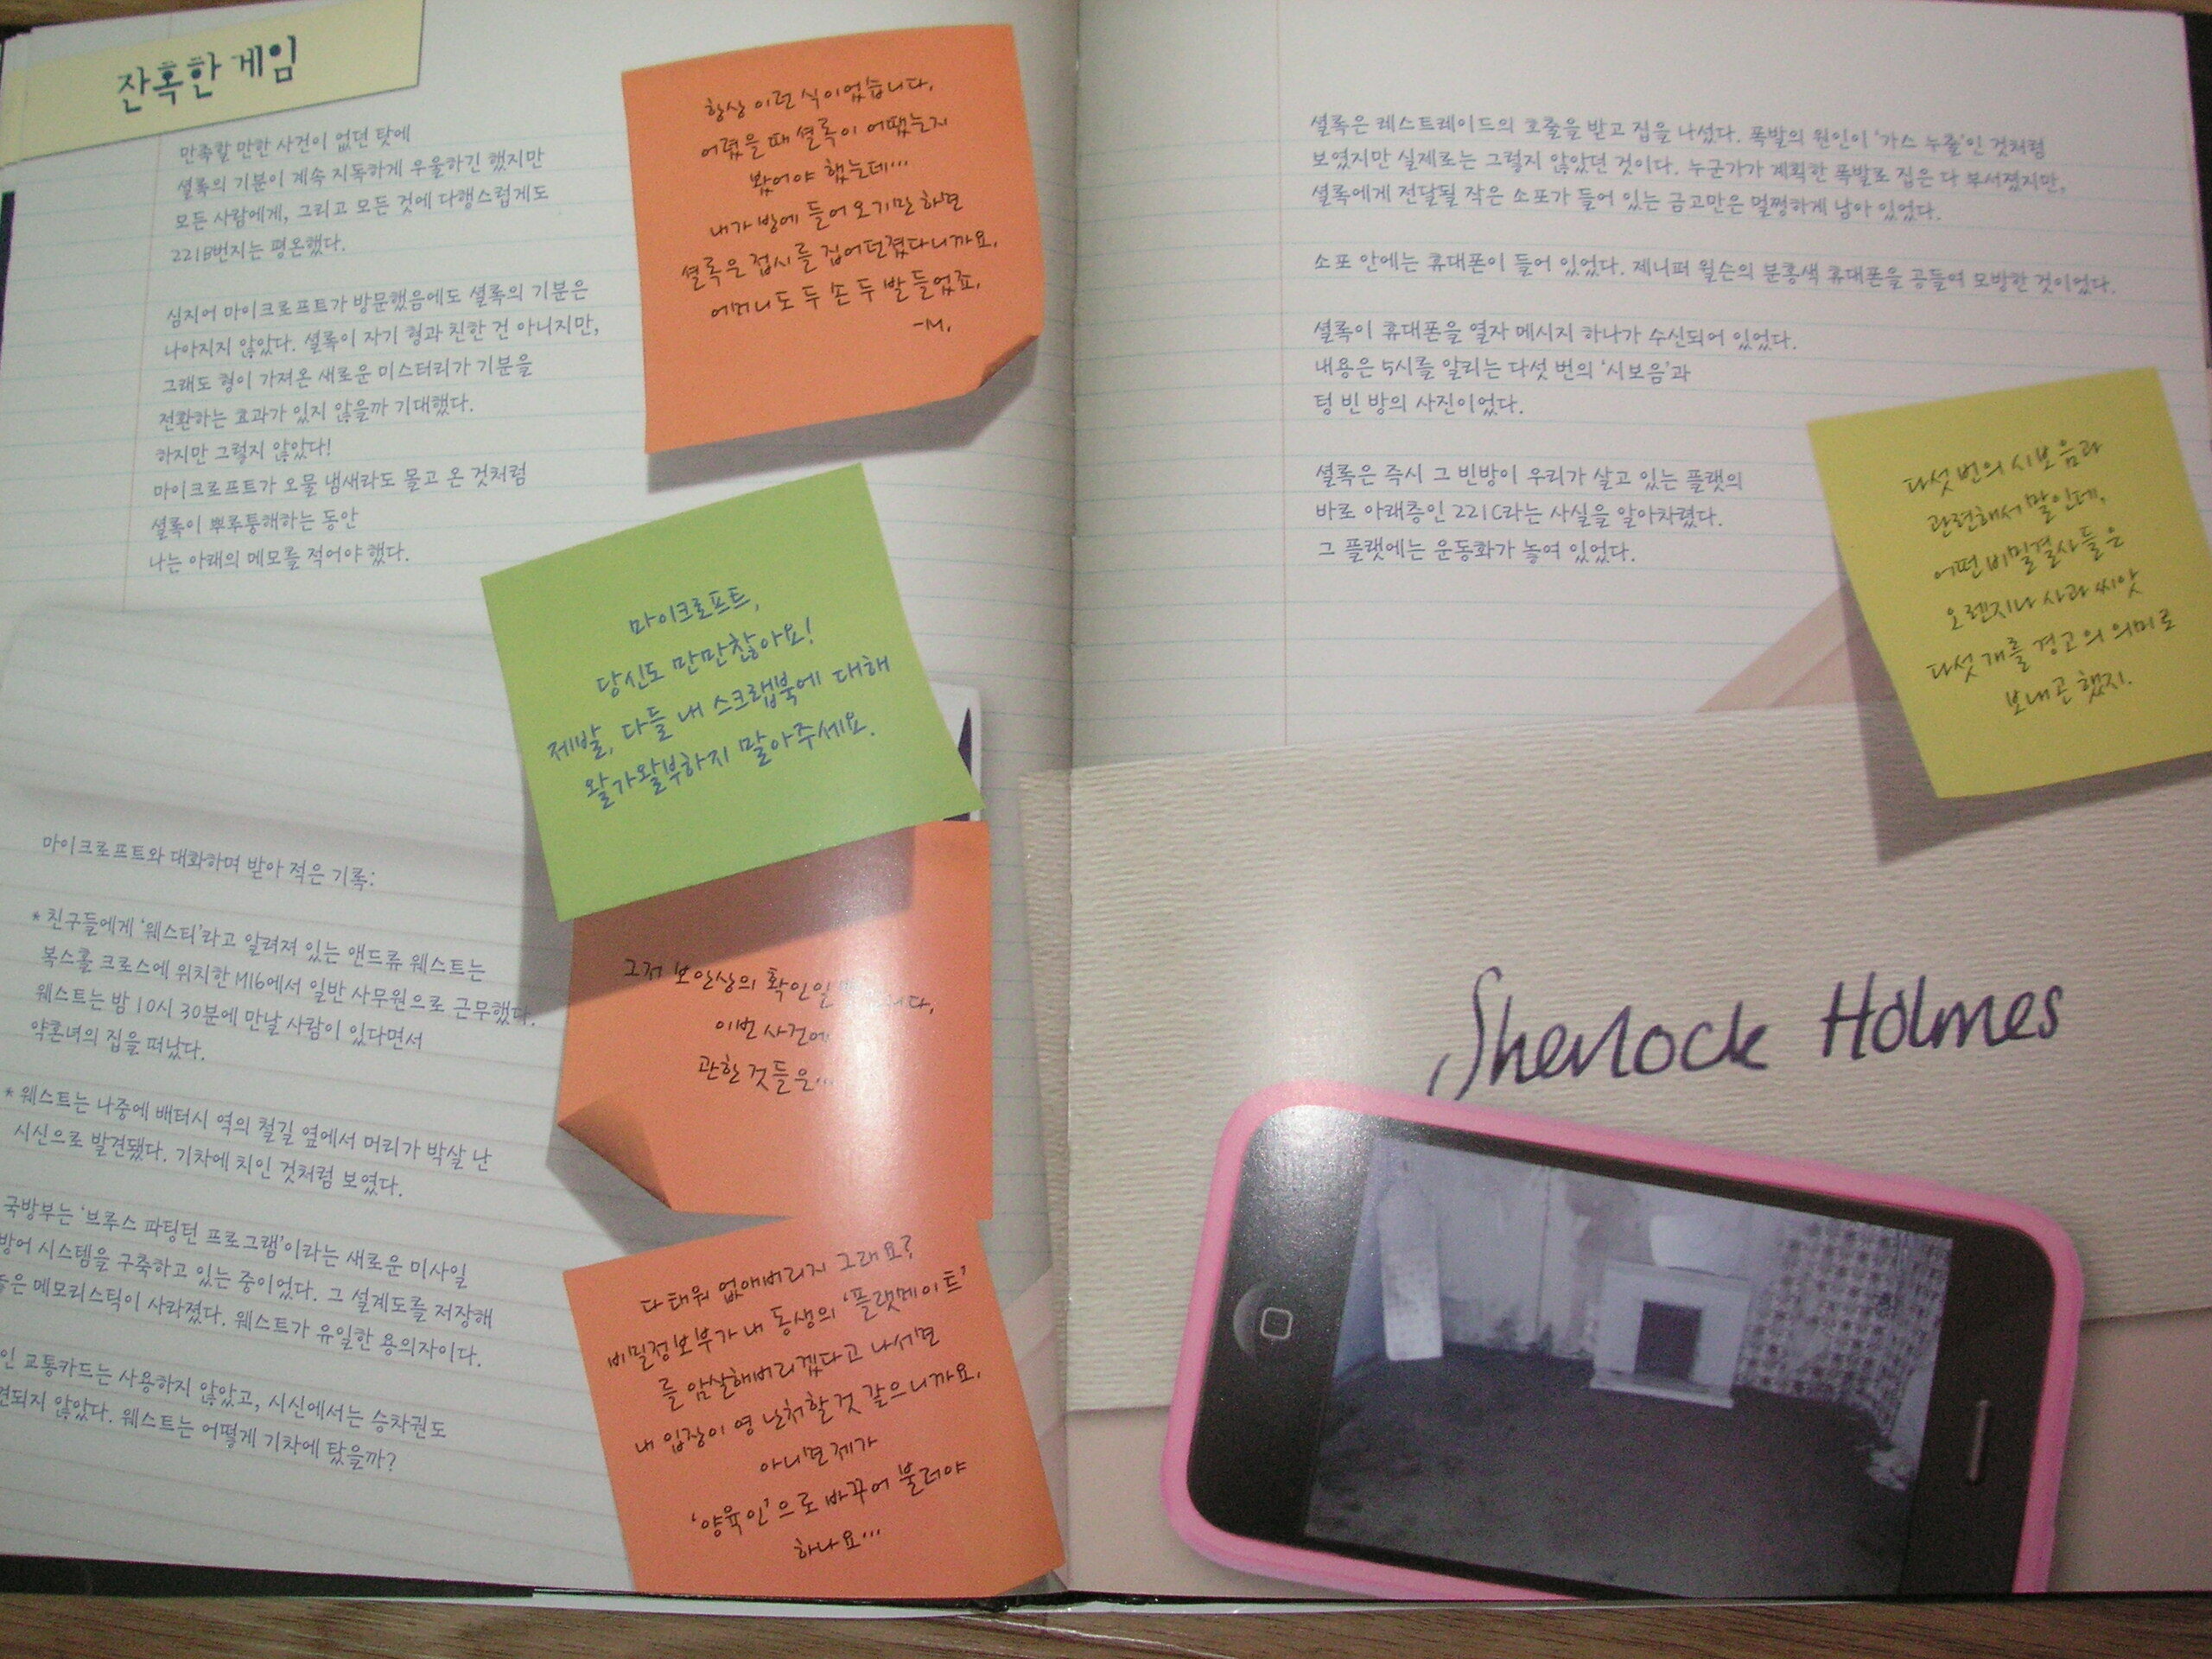 잔혹한 게임
만족할 만한 사건이 없던 탓에
셜록의 기분이 계속 지독하게 우울하긴 했지만
모든 사람에게, 그리고 모든 것에 다행스럽게도
221B번지는 평온했다.
심지어 마이크로프트가 방문했음에도 셜록의 기분은
나아지지 않았다. 셜록이 자기 형과 친한 건 아니지만,
그래도 형이 가져온 새로운 미스터리가 기분을
전환하는 효과가 있지 않을까 기대했다.
하지만 그렇지 않았다!
마이크로프트가 오물 냄새라도 몰고 온 것처럼
셜록이 뿌루퉁해하는 동안
나는 아래의 메모를 적어야 했다.
마이크로프트와 대화하며 받아 적은 기록:
* 친구들에게 '웨스티'라고 알려져 있는 앤드류 웨스트는
복스홀 크로스에 위치한 MI6에서 일반 사무원으로 근무했다.
웨스트는 밤 10시 30분에 만날 사람이 있다면서
약혼녀의 집을 떠났다.
* 웨스트는 나중에 배터시 역의 철길 옆에서 머리가 박살 난
시신으로 발견됐다. 기차에 치인 것처럼 보였다.
국방부는 '브루스 파팅턴 프로그램'이라는 새로운 미사일
방어 시스템을 구축하고 있는 중이었다. 그 설계도를 저장해
놓은 메모리스틱이 사라졌다. 웨스트가 유일한 용의자이다.
인 교통카드는 사용하지 않았고, 시신에서는 승차권도
견되지 않았다. 웨스트는 어떻게 기차에 탔을까?
항상 이런 식이었습니다.
어렸을 때 셜록이 어땠는지
봤어야 했는데...
내가 방에 들어오기만 하면
셜록은 접시를 집어던졌다니까요.
어머니도 두 손 두 발 들었죠.
-M.
마이크로프트,
당신도 만만찮아요!
제발, 다들 내 스크랩북에 대해
왈가왈부하지 말아주세요.
그저 보안상의 확인일
이번 사건에
관한 것들은...
다 태워 없애버리지 그래요?
비밀정보부가 내 동생의 '플랫메이트'
를 암살해버리겠다고 나서면
내 입장이 영 난처할 것 같으니까요.
아니면 제가
'양육인'으로 바꾸어 불러야
하나요...
셜록은 레스트레이드의 호출을 받고 집을 나섰다. 폭발의 원인이 '가스 누출'인 것처럼
보였지만 실제로는 그렇지 않았던 것이다. 누군가가 계획한 폭발로 집은 다 부서졌지만,
셜록에게 전달될 작은 소포가 들어 있는 금고만은 멀쩡하게 남아 있었다.
소포 안에는 휴대폰이 들어 있었다. 제니퍼 윌슨의 분홍색 휴대폰을 공들여 모방한 것이었다.
셜록이 휴대폰을 열자 메시지 하나가 수신되어 있었다.
내용은 5시를 알리는 다섯 번의 '시보음'과
텅 빈 방의 사진이었다.
셜록은 즉시 그 빈방이 우리가 살고 있는 플랫의
바로 아래층인 221C라는 사실을 알아차렸다.
그 플랫에는 운동화가 놓여 있었다.
다섯 번의 시보음과
관련해서 말인데,
어떤 비밀결사들은
오렌지나 사과 씨앗
다섯 개를 경고의 의미로
보내곤 했지.
Sherlock Holmes